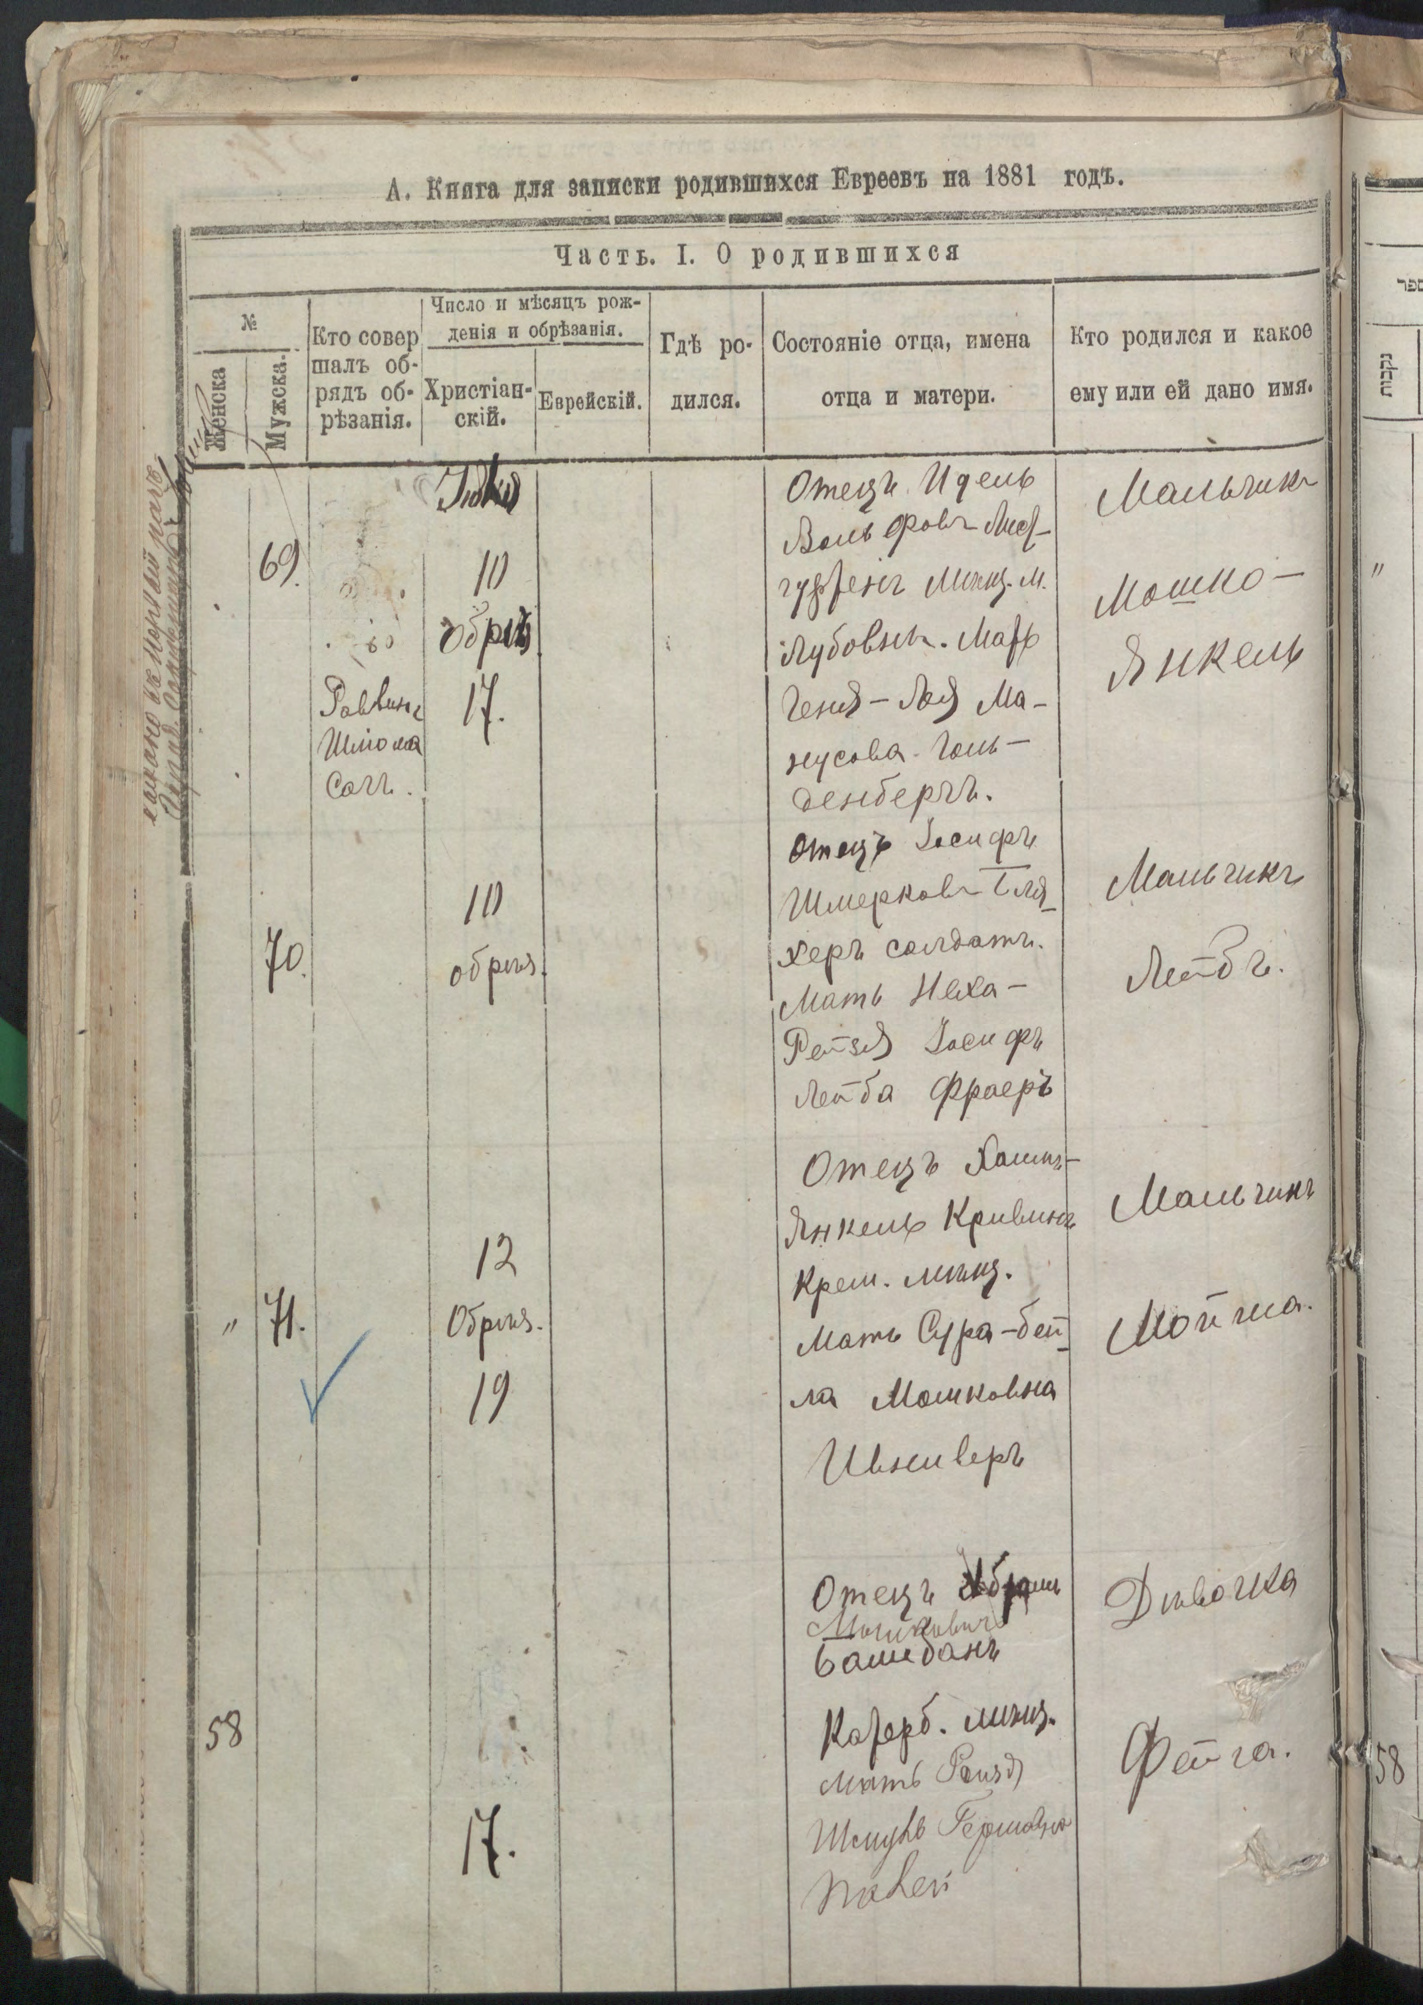 А. Книга для записки родившихся Евреевъ на 1881 годъ.
Часть. I. О родившихся
№
Женска
Мужска.
Кто совер
шалъ об-
рядъ об-
рѣзанія.
Число и мѣсяцъ рож-
денія и обрѣзанія.
Христіан-
скій.
Еврейскій.
Гдѣ ро-
дился.
Состояніе отца, имена
отца и матери.
Кто родился и какое
ему или ей дано имя.
69.
Раввинъ
Шліома
10
обрѣз
17.
Отецъ Идель
Вольфовъ
мѣщ. м.
Мать
Геня – Лея Ма-
нусова Голь-
денбергъ.
Мальчикъ
Мошко –
Янкель
70.
10
обрѣз.
Отецъ Іосифъ
Шмерковъ Бля-
херъ солдатъ.
Мать Неха –
Рейзя Іосифъ
Лейба Фраеръ
Мальчикъ
Лейбъ.
"
71.
12
Обрѣз.
19
Отецъ Хаимъ-
Янкель Кривинъ
Крем. мѣщ.
Мать Сура-бей-
ла Мошковна
Мальчикъ
Мойша.
58
17.
Отецъ Абрамъ
Мошковичъ
Башбанъ
мѣщ.
Мать Рейзя
Дѣвочка
Фейга.
ספר
נקבות
"
58